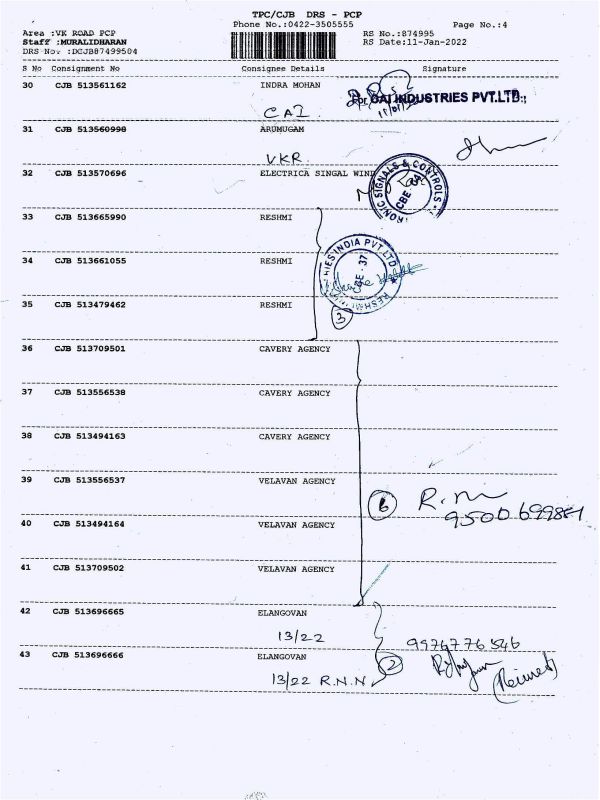 TPC/CJB DRS - PCP
Phone No.:0422-3505555
Page No.:4
Area :VK ROAD PCP
RS No.:874995
Staff :MURALIDHARAN
RS Date:11-Jan-2022
DRS No. :DCJB87499504
S No Consignment No Consignee Details Signature
30 CJB 513561162 INDRA MOHAN
For CAI INDUSTRIES PVT.LTD.,
CAI
31 CJB 513560998 ARUMUGAM
VKR
32 CJB 513570696 ELECTRICA SINGAL WIND
SIGNALS & CONTROLS
CBE
33 CJB 513665990 RESHMI
INDIA PVT.LTD.
34 CJB 513661055 RESHMI
37
35 CJB 513479462 RESHMI
3
36 CJB 513709501 CAVERY AGENCY
37 CJB 513556538 CAVERY AGENCY
38 CJB 513494163 CAVERY AGENCY
39 CJB 513556537 VELAVAN AGENCY
6 R.m
40 CJB 513494164 VELAVAN AGENCY
41 CJB 513709502 VELAVAN AGENCY
42 CJB 513696665 ELANGOVAN
13/22
9976776346
43 CJB 513696666 ELANGOVAN
2
13/22 R.N.N